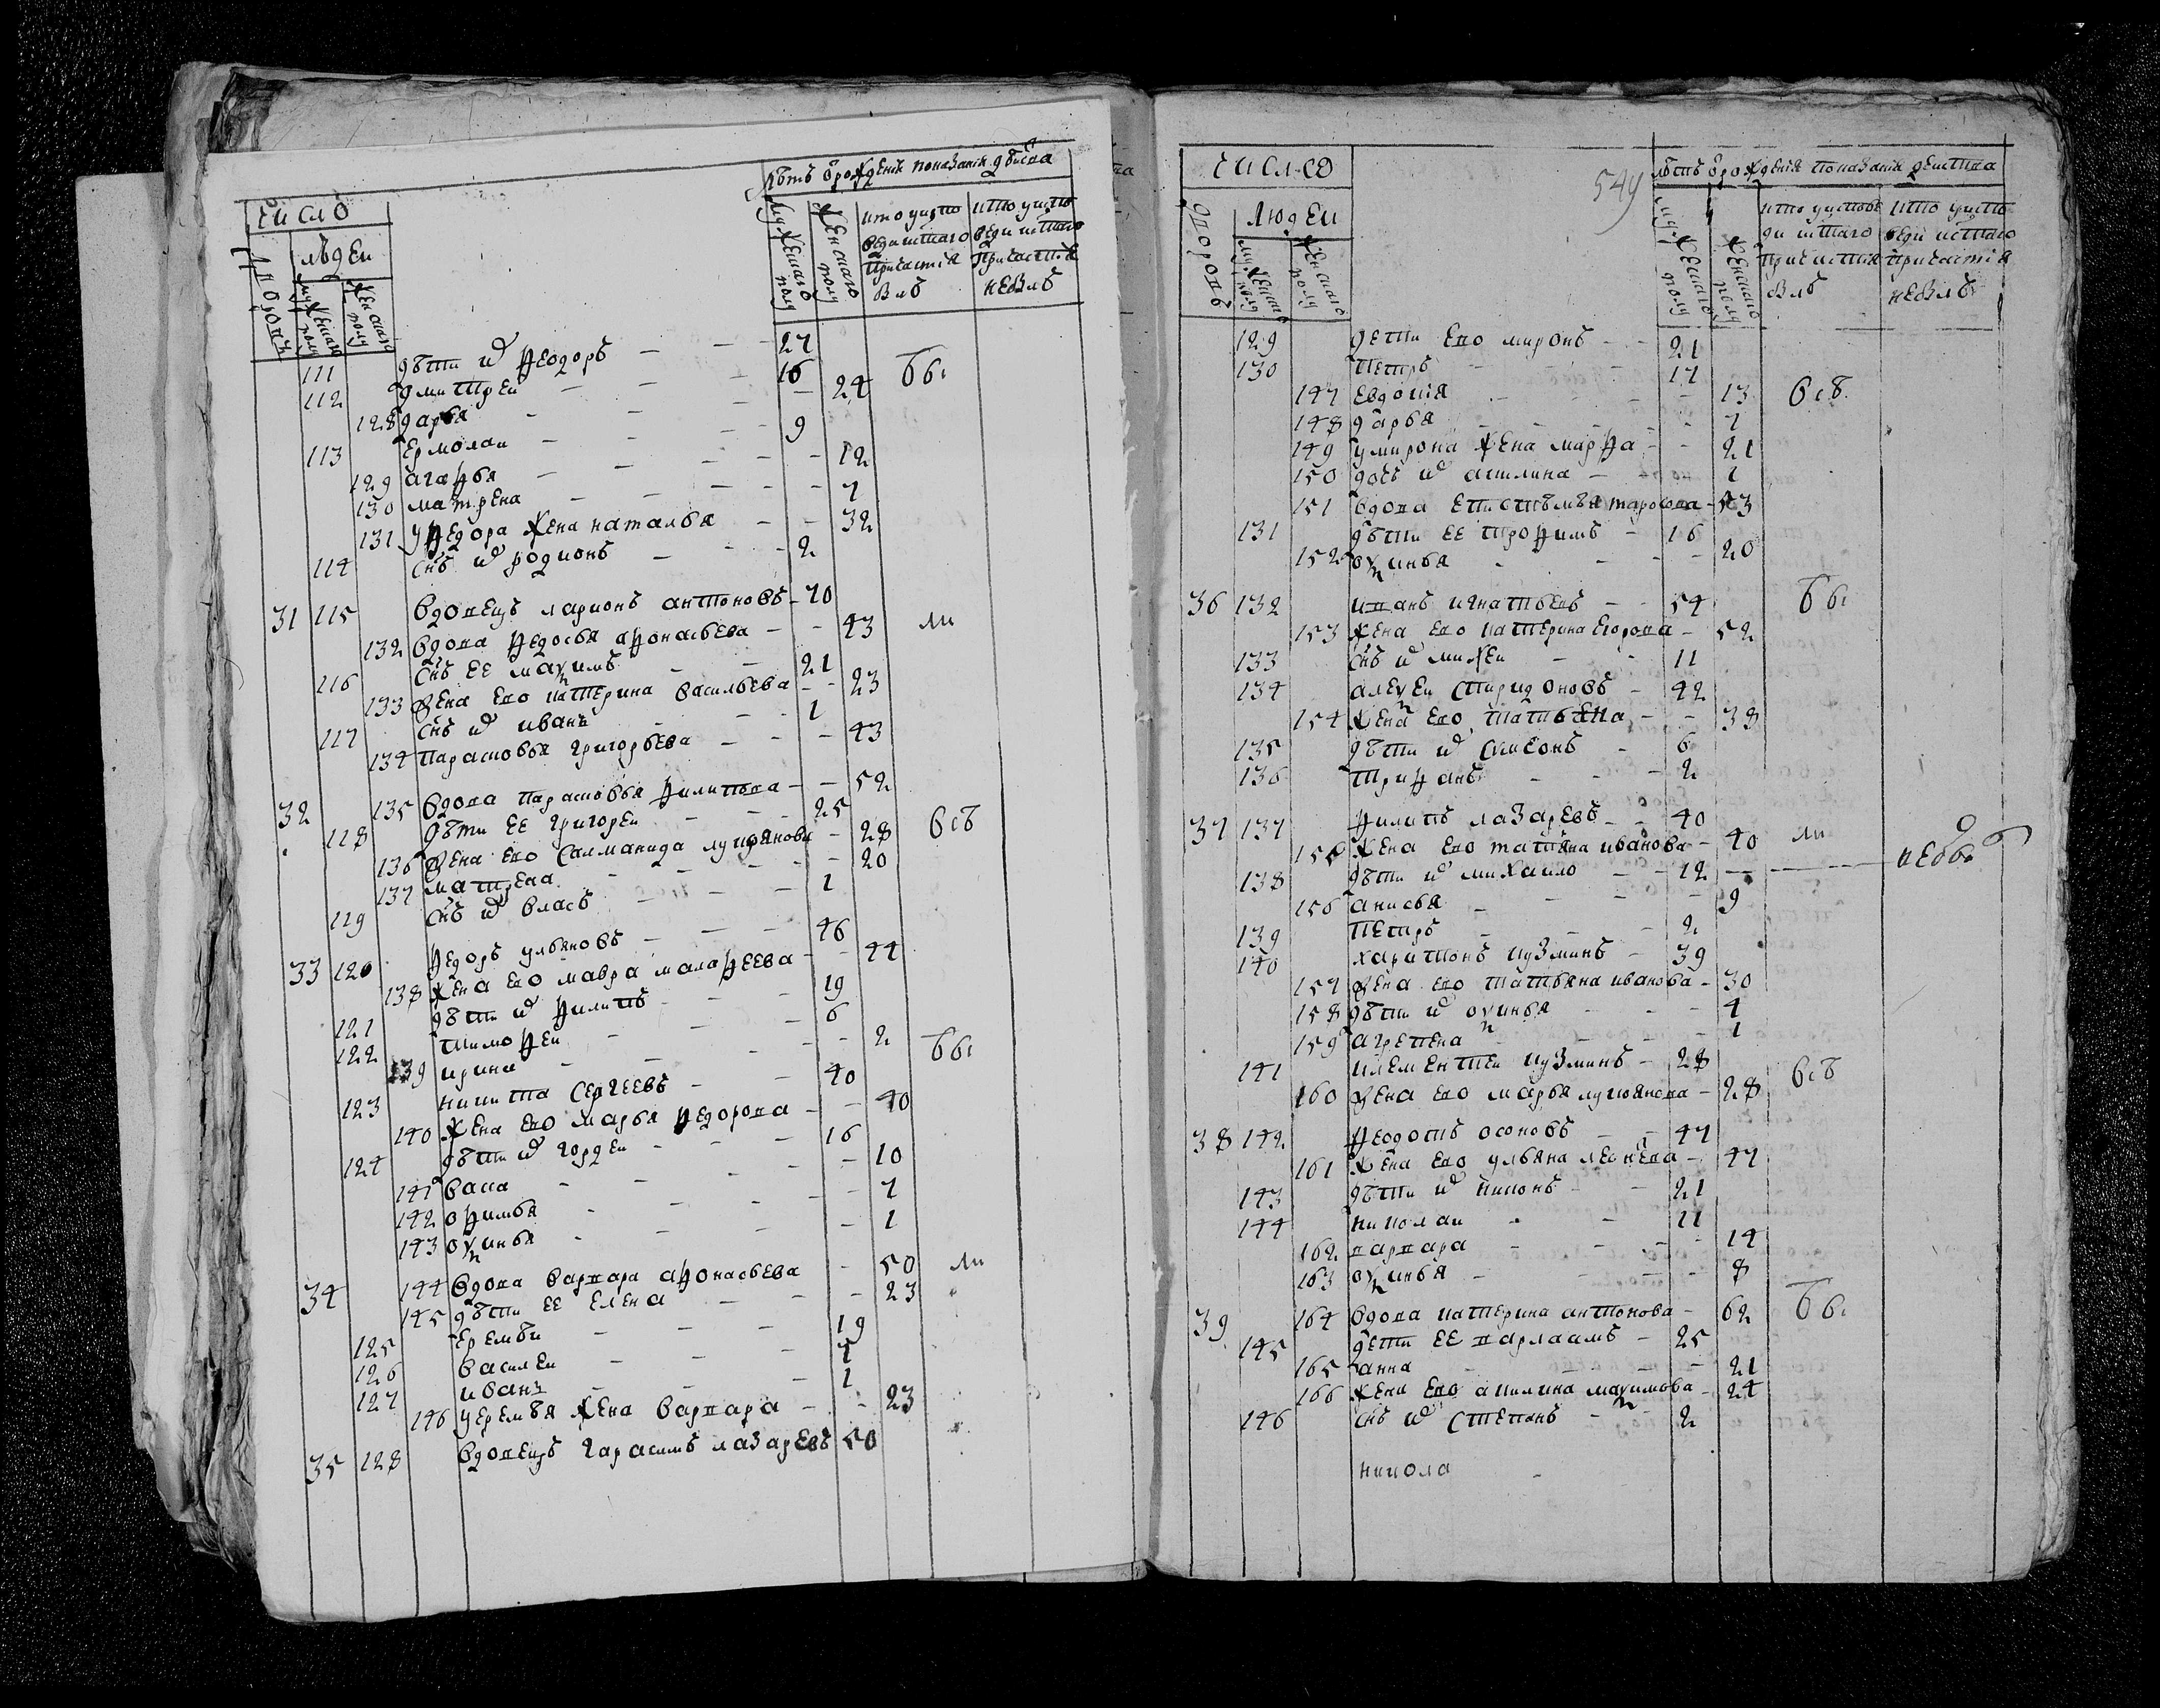 число
лѣтъ ѿ рожденія показаніи дѣйства
людеи
дворовъ
мужескаго полу
женскаго полу
мужескаго полу
женскаго полу
кто у исповеди и святаго причастія былъ
кто у исповеди и святаго причастія небылъ
111 дѣти иѲ Ѳеодоръ - - - 27
112 дмитреи - - - 16 бы
128 дарья - - - 24
113 ермолаи - - - 9
129 агаѲья - - - 12
130 матрена - - - 7
131 у Ѳедора жена наталья - - 32
114 снъ иѲ родионъ - - - 2
31 115 вдовецъ ларионъ антоновъ - 70
132 вдова Ѳедосья аѲонасьева - - 43 ли
116 снъ ее маѯимъ - - 21
133 жена ево катерина васильева - - 23
117 снъ иѲ иванъ - - - 1
134 парасковья григорьева - - - 43
32 135 вдова парасковья Ѳилипова - - 52
118 дѣти ее григореи - - - 25
136 жена ево саламанида лукиянова - 28 всѣ
137 матрена - - - 20
119 снъ иѲ власъ - - - 1
33 120 Ѳедоръ ульяновъ - - - 46
138 жена ево мавра малаѲеева - - 44
121 дѣти иѲ Ѳилипъ - - - 19
122 тимоѲеи - - - 6
139 ирина - - - 2 бы
123 никита сергеевъ - - 40
140 жена ево марья Ѳедорова - - 40
124 дѣти иѲ гордеи - - - 16
141 васа - - - 10
142 оѲимья - - - 7
143 оѯинья - - - 1
34 144 вдова варвара аѲонасьева - 50 ли
145 дѣти ее елена - - - 23
125 еремѣи - - - 19
126 василеи - - - 7
127 иванъ - - - 1
146 у еремѣя жена варвара - - 23
35 128 вдовецъ гарасимъ лазаревъ 50
число
549
лѣтъ ѿ рожденія показаніи действа
людеи
дворовъ
мужескаго полу
женскаго полу
мужескаго полу
женскаго полу
кто у исповеди и святаго причастія былъ
кто у исповеди и святаго причастія небылъ
129 дети ево миронъ - - 21
130 петръ - - 17
147 евдокія - - - 13 всѣ
148 дарья - - - 7
149 у мирона жена марѲа - - 21
150 дочь иѲ акилина - - 1
151 вдова епистѣмѣя тарасова - 53
131 дѣти ее троѲимъ - 16
152 оѯинья - - - 20
36 132 иванъ игнатьевъ - - 54 бы
153 жена ево катерина егорова - 52
133 снъ иѲ михеи - - 11
134 алеѯеи спиридоновъ - 42
154 жена ево татьяна - - 38
135 дѣти иѲ симеонъ - 6
136 триѲанъ - - - 2
37 137 Ѳилипъ лазаревъ - - 40
155 жена ево татьяна иванова - 40 ли
138 дѣти иѲ михаило - - 12 - небы
156 анисья - - - 9
139 петръ - - - 2
140 харитонъ кузминъ - 39
157 жена ево татьяна иванова - 30
158 дѣти иѲ оѯинья - - - 4
159 агрепена - - - 1
141 клементеи кузминъ - 28
160 жена ево марья лукиянова - 28 всѣ
38 142 Ѳеодотъ осиповъ - - 47
161 жена ево ульяна леонѣева - 47
143 дѣти иѲ никонъ - - 21
144 николаи - - 11
162 варвара - - - 14
163 оѯинья - - - 8
39 164 вдова катерина антонова - 62 бы
145 дети ее варлаамъ - 25
165 анна - - - 21
166 жена ево акилина маѯимова - 24
146 снъ иѲ степанъ - - 2
никола